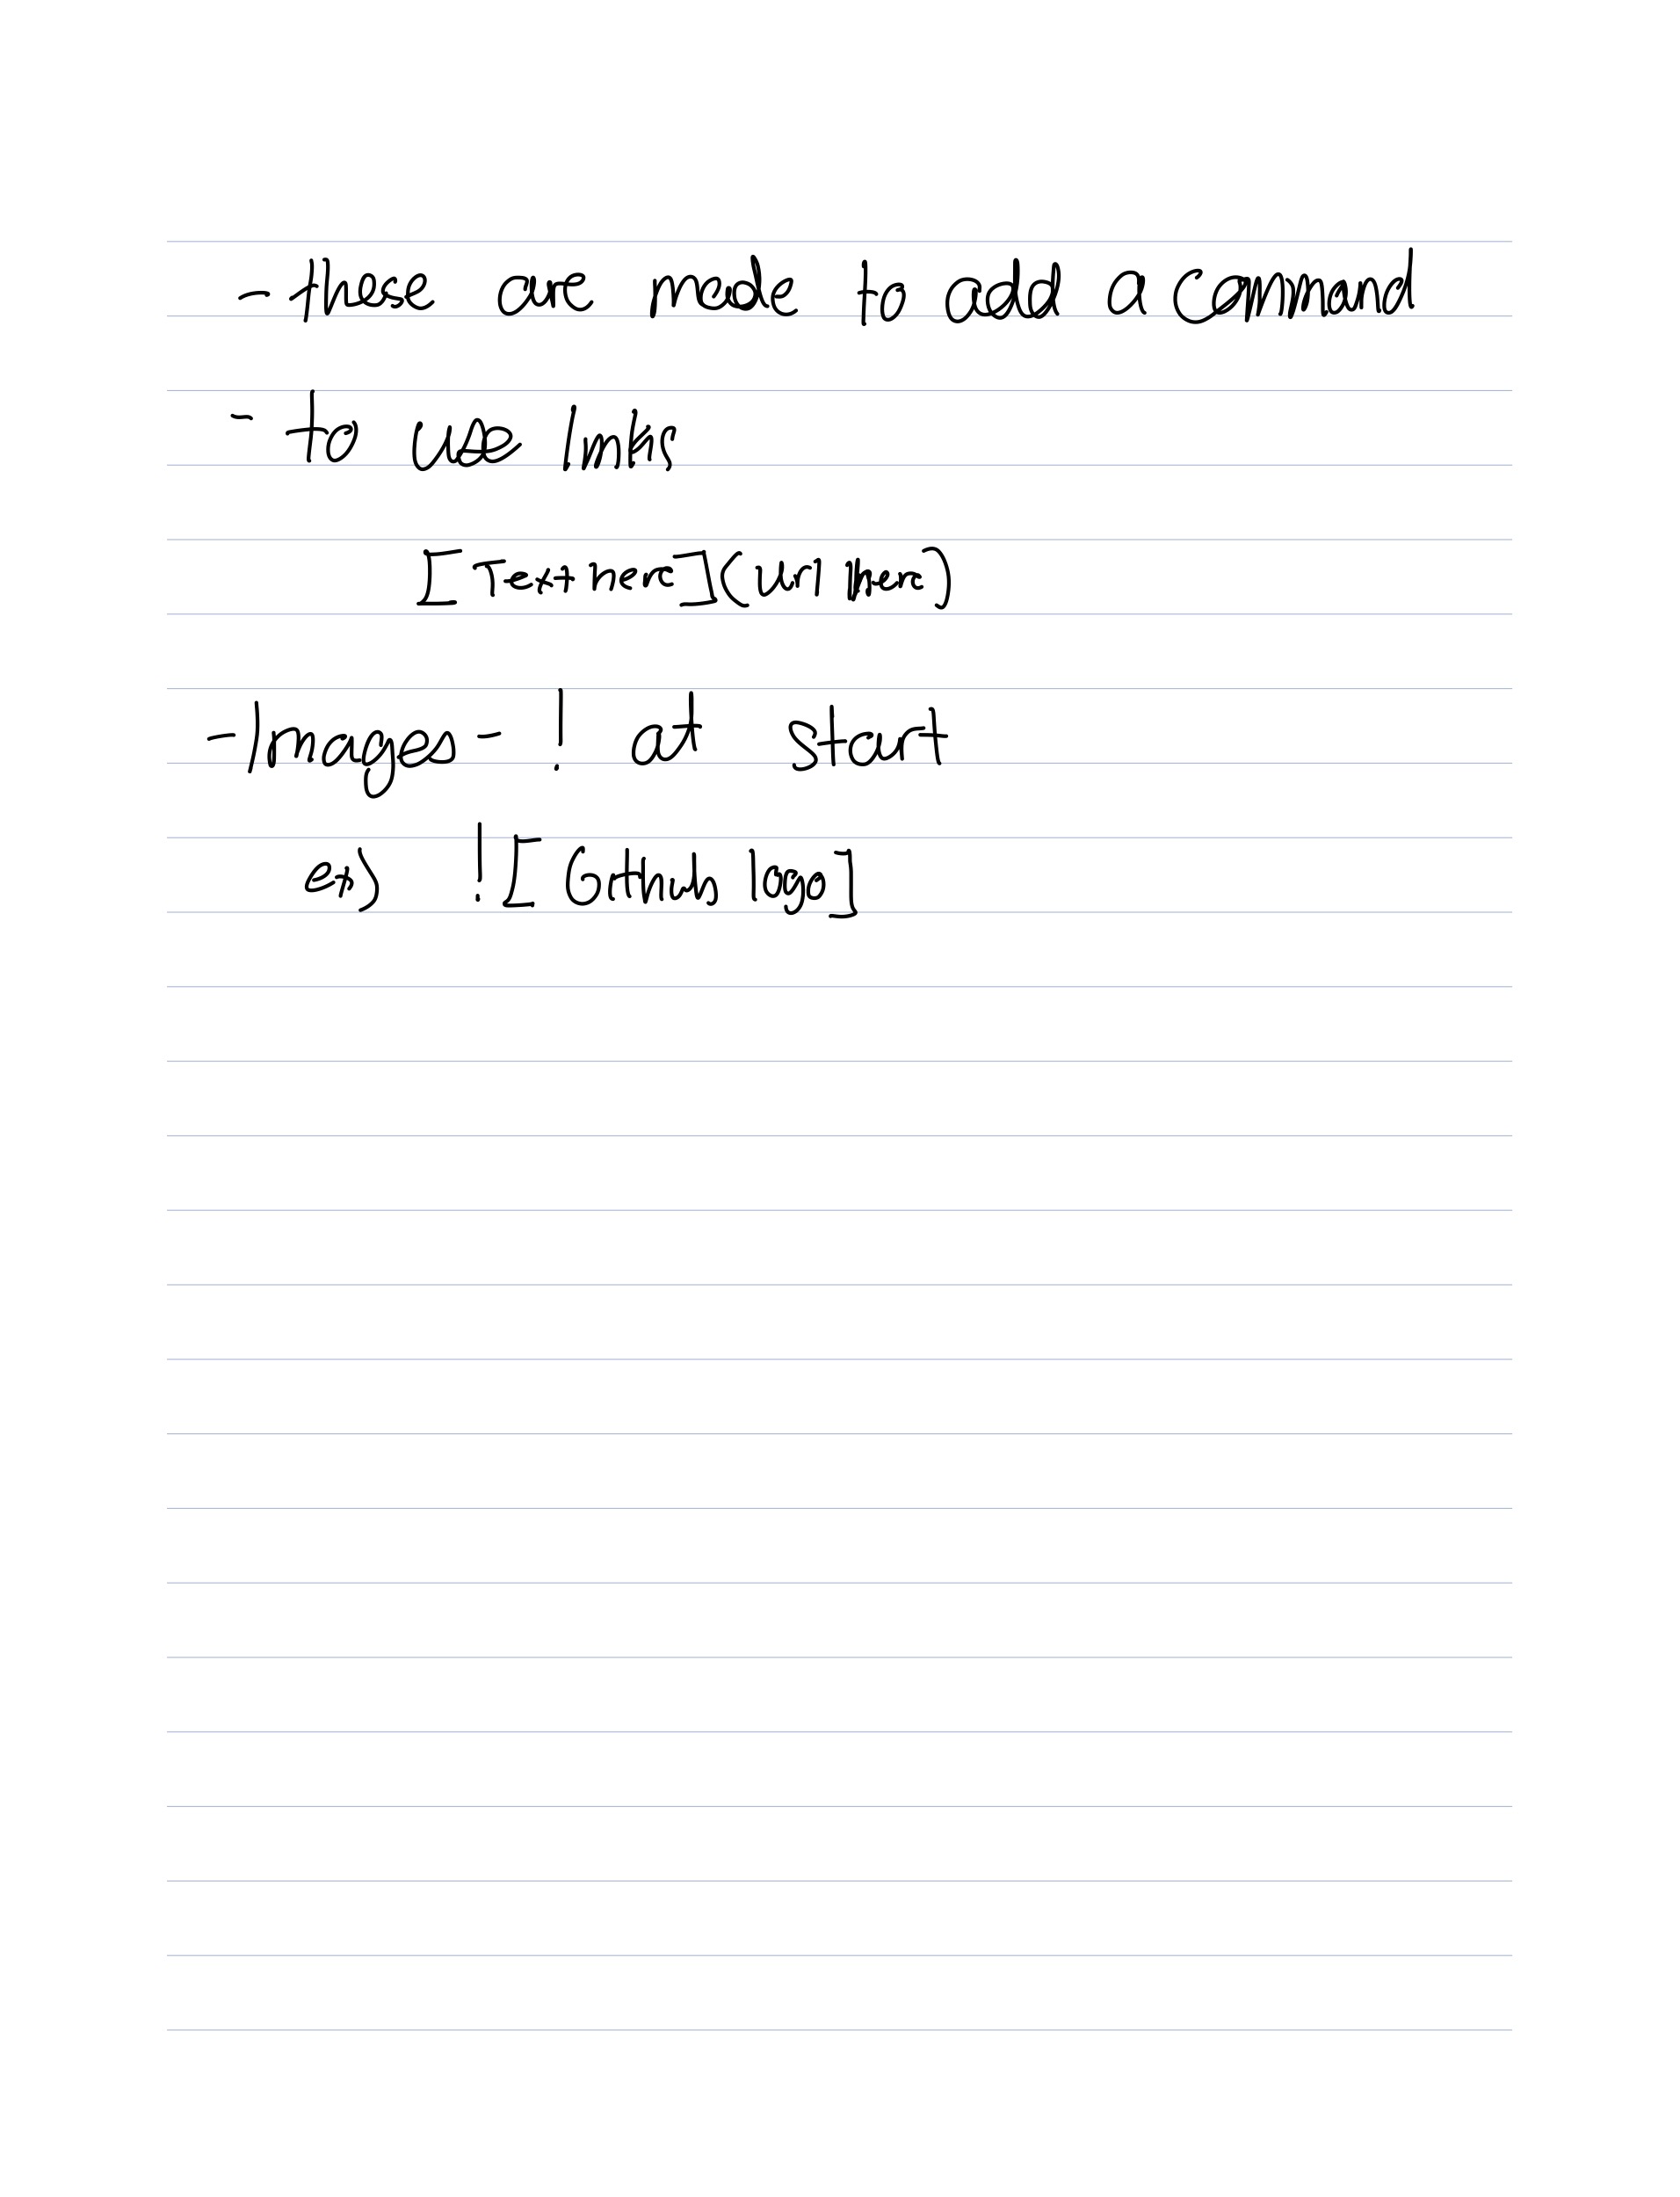 - these are made to add a command
- to use links
[Text here](url here)
- Images - ! at start
ex) ![Github logo]